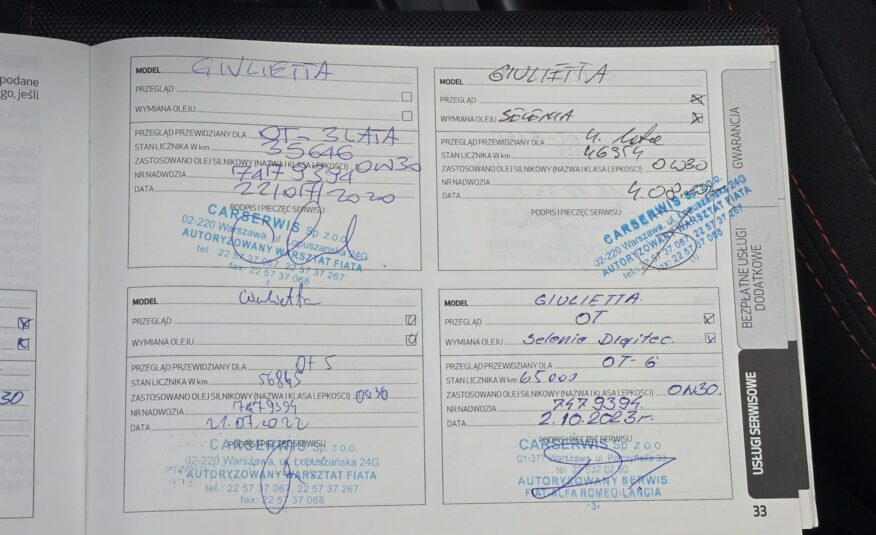 podane
go, jeśli
30
MODEL GIULIETTA
PRZEGLĄD
WYMIANA OLEJU
PRZEGLĄD PRZEWIDZIANY DLA OT-3 LATA
STAN LICZNIKA W km 35646
ZASTOSOWANO OLEJ SILNIKOWY (NAZWA I KLASA LEPKOŚCI) 0W30
NR NADWOZIA 7479394
DATA 22/07/2020
PODPIS I PIECZĘĆ SERWISU
CARSERWIS Sp z o.o.
02-220 Warszawa, ul. Łopuszańska 24G
AUTORYZOWANY WARSZTAT FIATA
tel 22 57 37 067, 22 57 37 267
fax 22 57 37 068
MODEL GIULIETTA
PRZEGLĄD
WYMIANA OLEJU SELENIA
PRZEGLĄD PRZEWIDZIANY DLA 4. lata
STAN LICZNIKA W km 46354
ZASTOSOWANO OLEJ SILNIKOWY (NAZWA I KLASA LEPKOŚCI) 0W30
NR NADWOZIA
DATA 4.08
PODPIS I PIECZĘĆ SERWISU
CARSERWIS Sp. z o.o.
02-220 Warszawa, ul. Łopuszańska 24G
AUTORYZOWANY WARSZTAT FIATA
tel.: 22 57 37 067, 22 57 37 267
fax: 22 57 37 068
MODEL Giulietta
PRZEGLĄD
WYMIANA OLEJU
PRZEGLĄD PRZEWIDZIANY DLA OT 5
STAN LICZNIKA W km 56845
ZASTOSOWANO OLEJ SILNIKOWY (NAZWA I KLASA LEPKOŚCI) 0W30
NR NADWOZIA 7479394
DATA 21.07.2022
PODPIS I PIECZĘĆ SERWISU
CARSERWIS Sp. z o.o.
02-220 Warszawa, ul. Łopuszańska 24G
AUTORYZOWANY WARSZTAT FIATA
tel.: 22 57 37 067, 22 57 37 267
fax: 22 57 37 068
MODEL GIULIETTA
PRZEGLĄD OT
WYMIANA OLEJU Selenia Digitec.
PRZEGLĄD PRZEWIDZIANY DLA OT-6
STAN LICZNIKA W km 65000
ZASTOSOWANO OLEJ SILNIKOWY (NAZWA I KLASA LEPKOŚCI) 0W30.
NR NADWOZIA 7479394.
DATA 2.10.2023r.
PODPIS I PIECZĘĆ SERWISU
CARSERWIS Sp z o o
01-377 Warszawa, ul. Połczyńska 33
tel. 22 532 02 50
AUTORYZOWANY SERWIS
FIAT-ALFA ROMEO-LANCIA
-3-
GWARANCJA
BEZPŁATNE USŁUGI
DODATKOWE
USŁUGI SERWISOWE
33